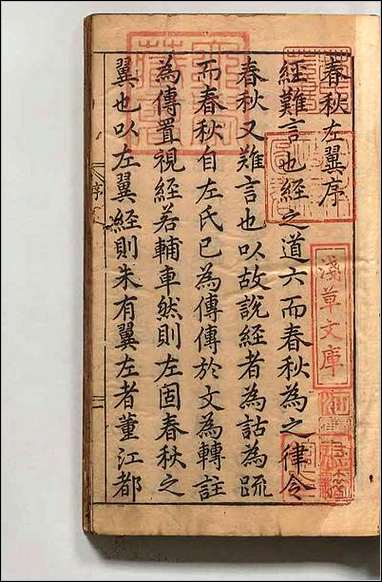 春秋左翼序
經難言也經之道六而春秋為之律令
春秋又難言也以故說經者為詁為䟽
而春秋自左氏已為傳傳於文為轉註
為傳置視經若輔車然則左固春秋之
翼也以左翼經則朱有翼左者董江都
序
淺草文庫